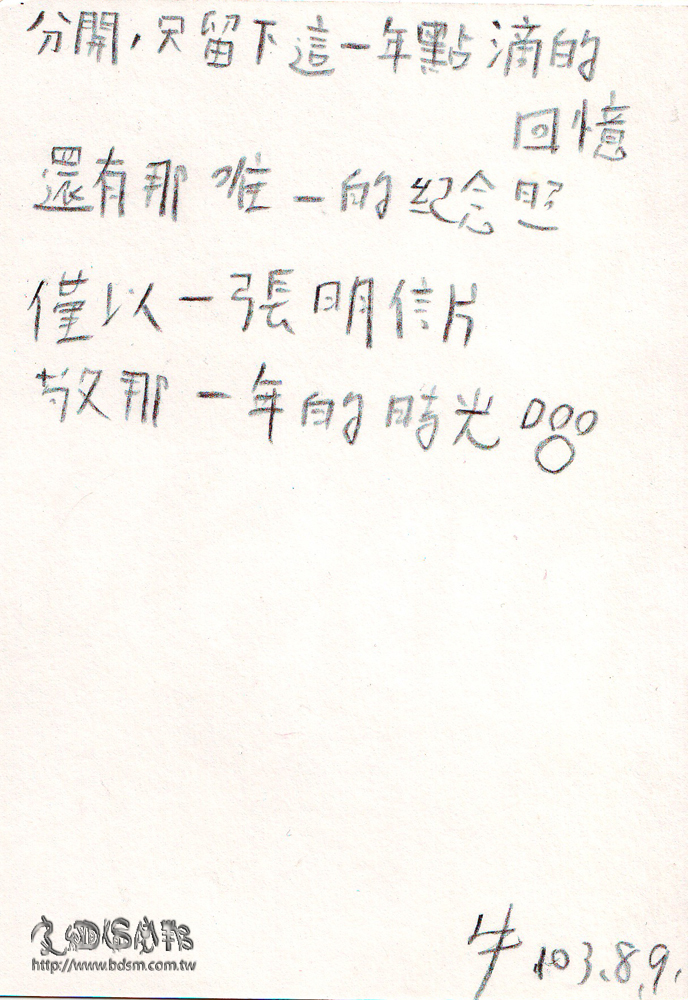 分開,只留下這一年點滴的
回憶
還有那唯一的紀念照
僅以一張明信片
敬那一年的時光
牛 103.8.9.
http://www.bdsm.com.tw